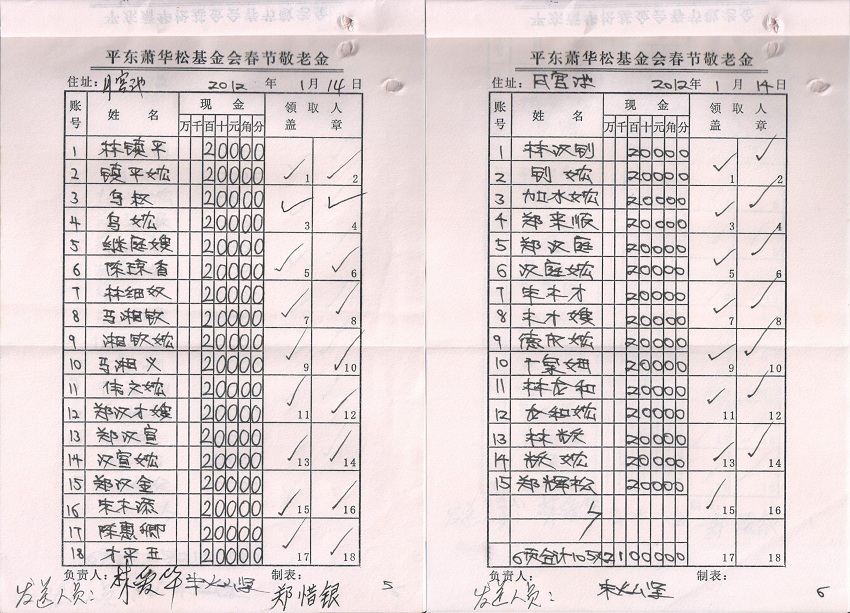 平东萧华松基金会春节敬老金
住址：月宫池 2012 年 1 月 14 日
账号 姓 名 现 金 领 取 人
万 千 百 十 元 角 分 盖 章
1 林镇平 20000
2 镇平妶 20000 1 2
3 乌叔 20000
4 乌妶 20000 3 4
5 继庭嫂 20000
6 陈琼香 20000 5 6
7 林细奴 20000
8 马湘钦 20000 7 8
9 湘钦妶 20000
10 马湘义 20000 9 10
11 伟文妶 20000
12 郑汉才嫂 20000 11 12
13 郑汉宣 20000
14 汉宣妶 20000 13 14
15 郑汉金 20000
16 朱木添 20000 15 16
17 陈惠卿 20000
18 才平五 20000 17 18
负责人： 制表：
发送人员： 林爱华 郑惜银
5
平东萧华松基金会春节敬老金
住址：月宫池 2012 年 1 月 14 日
账号 姓 名 现 金 领 取 人
万 千 百 十 元 角 分 盖 章
1 林汉钊 20000
2 钊妶 20000 1 2
3 加水妶 20000
4 郑来顺 20000 3 4
5 郑汉庭 20000
6 汉庭妶 20000 5 6
7 朱木才 20000
8 木才嫂 20000 7 8
9 德庆妶 20000
10 20000 9 10
11 20000
12 20000 11 12
13 20000
14 20000 13 14
15 郑辉松 20000
15 16
6页合计105 2100000 17 18
负责人： 制表：
发送人员：
6